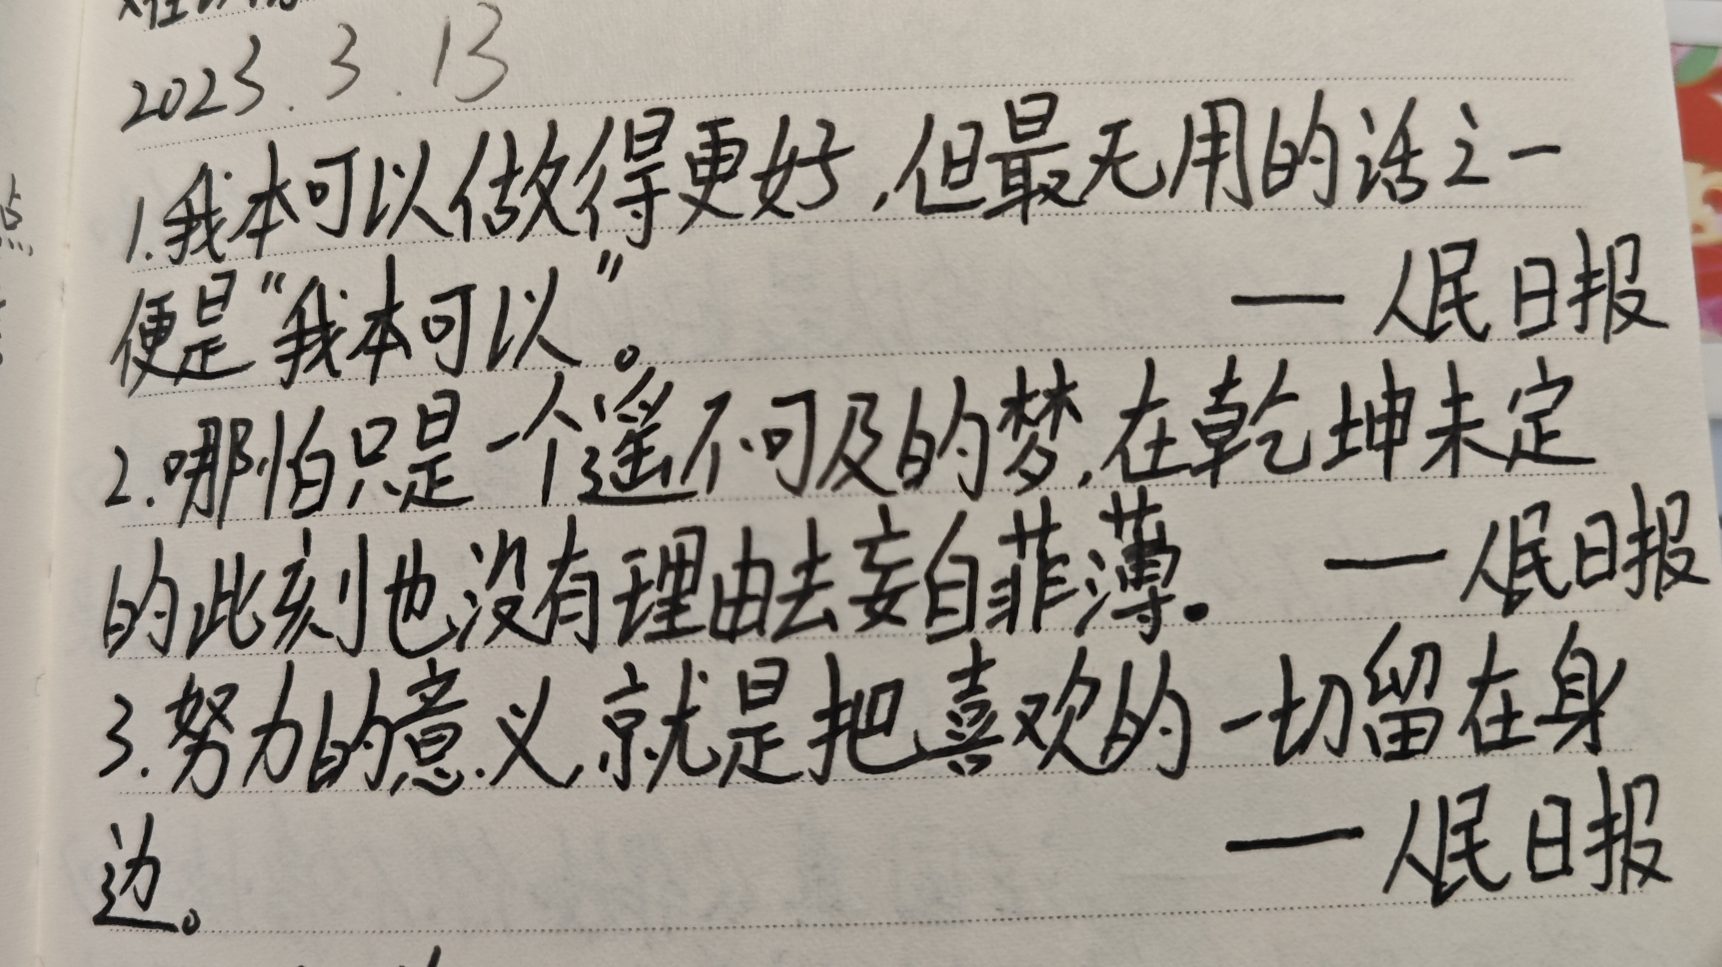 2023.3.13
1.我本可以做得更好,但最无用的话之一
便是"我本可以"。
——人民日报
2.哪怕只是一个遥不可及的梦,在乾坤未定
的此刻也没有理由去妄自菲薄.
——人民日报
3.努力的意义,就是把喜欢的一切留在身
边。
——人民日报